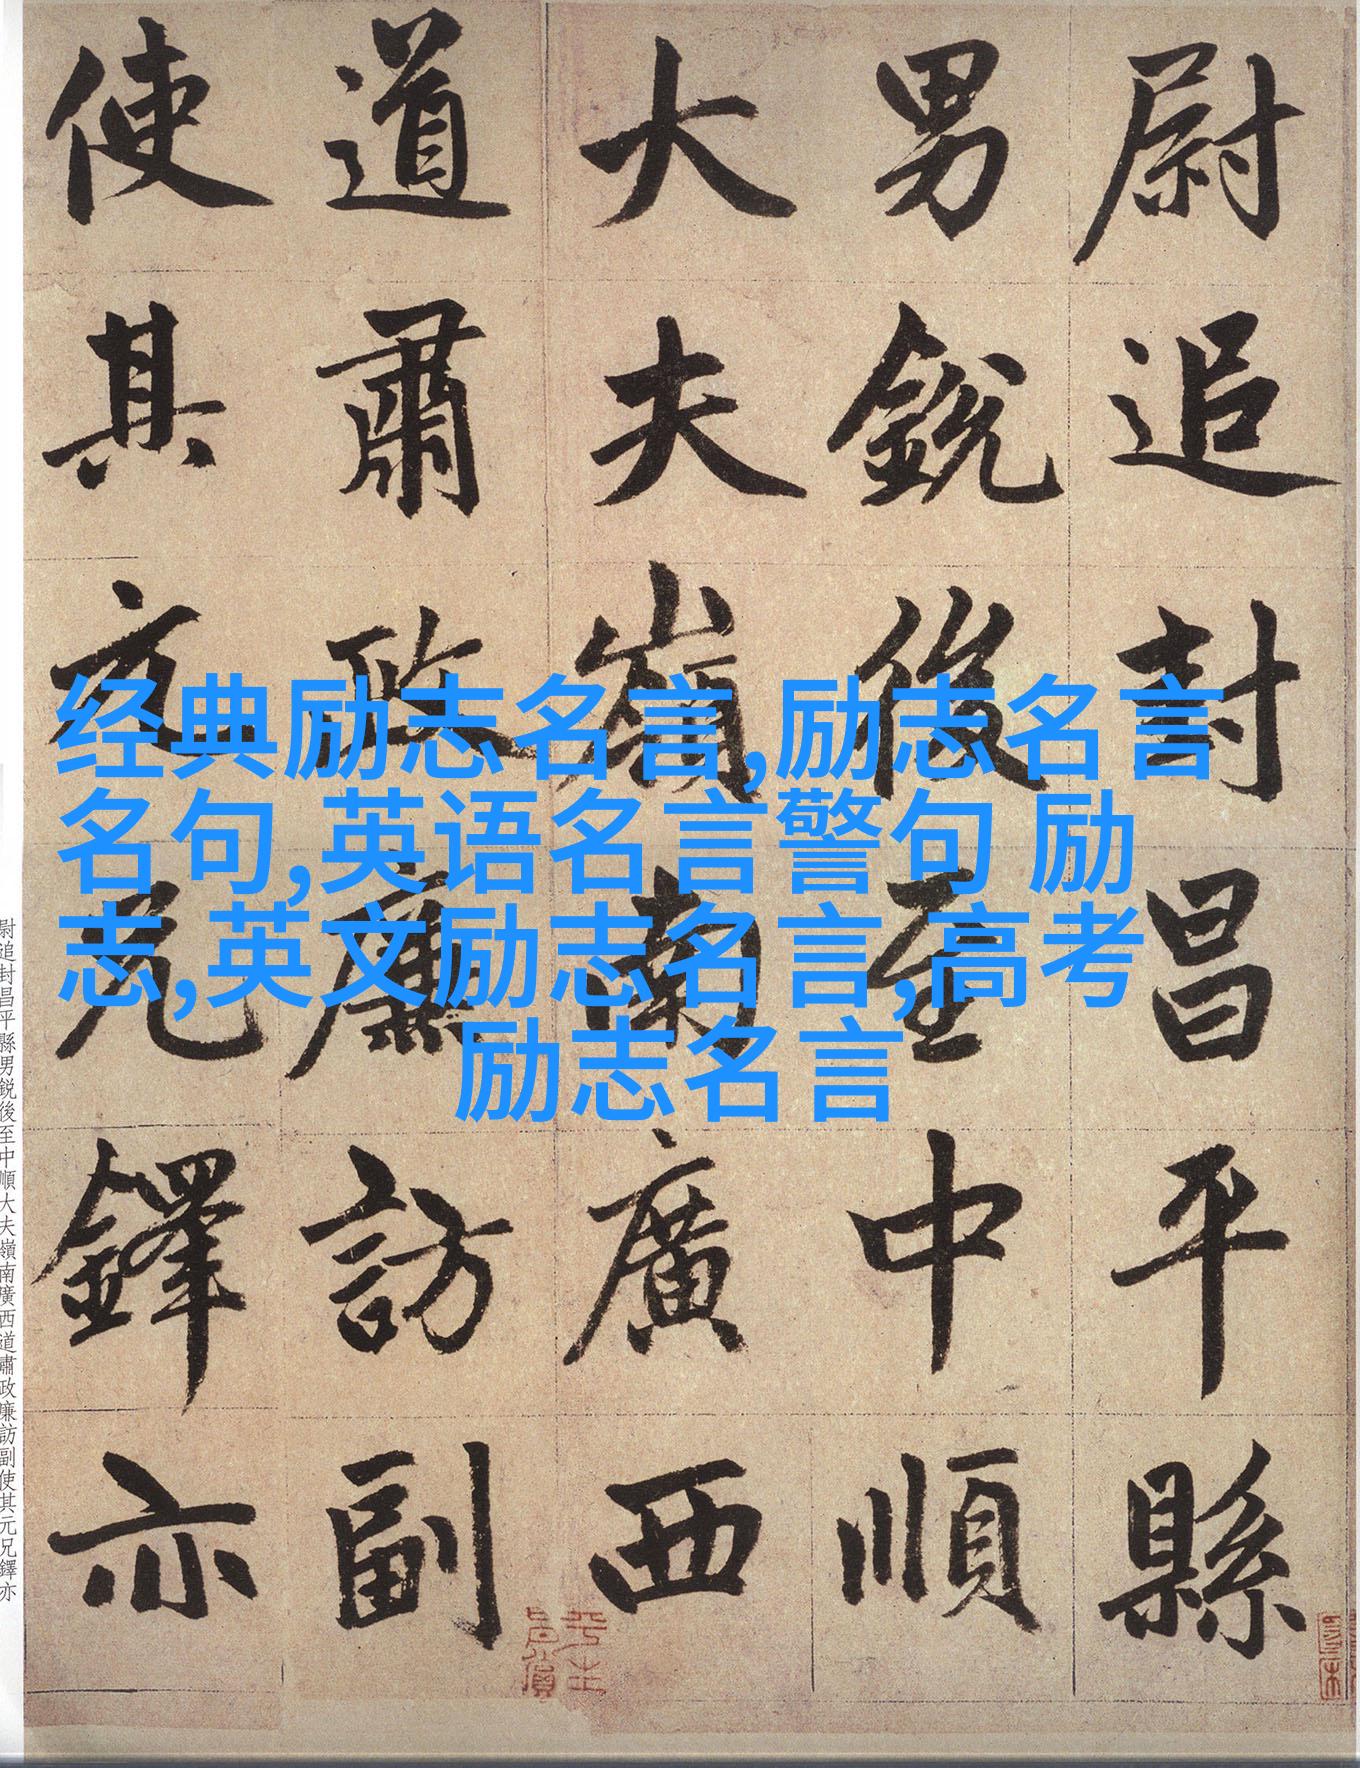 尉追封昌平縣
男銳後至中順
大夫嶺南廣西
道肅政廉訪副
使其元兄鐸亦
经典励志名言,励志名言
名句,英语名言警句 励
志,英文励志名言,高考
励志名言
尉追封昌平縣男鋭後至中順大夫嶺南廣西道肅政廉訪副使其元兄鐸亦